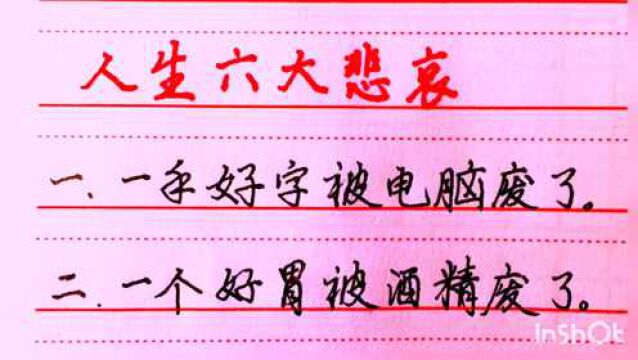 人生六大悲哀
一.一手好字被电脑废了。
二.一个好胃被酒精废了。
InShOt